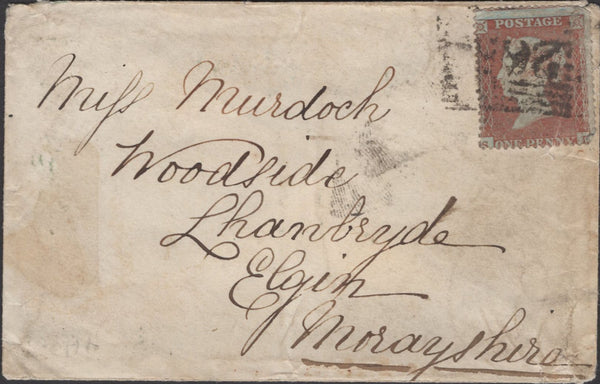 POSTAGE
ONE PENNY
Miss Murdoch
Woodside
Lhanbryde
Elgin
Morayshire